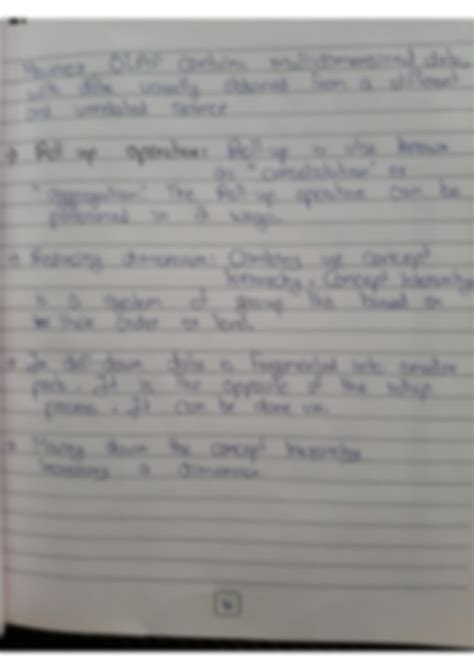 OLAP contains multidimensional data
with data usually obtained from a different
and unrelated source
Roll up operation: Roll-up is also known
as "consolidation" or
"aggregation". The Roll-up operation can be
performed in 2 ways.
Reducing dimension: Climbing up concept
hierarchy. Concept hierarchy
is a system of grouping based on
their order or level.
In drill-down data is fragmented into smaller
parts. It is the opposite of the rollup
process. It can be done via.
Moving down the concept hierarchy
Increasing a dimension